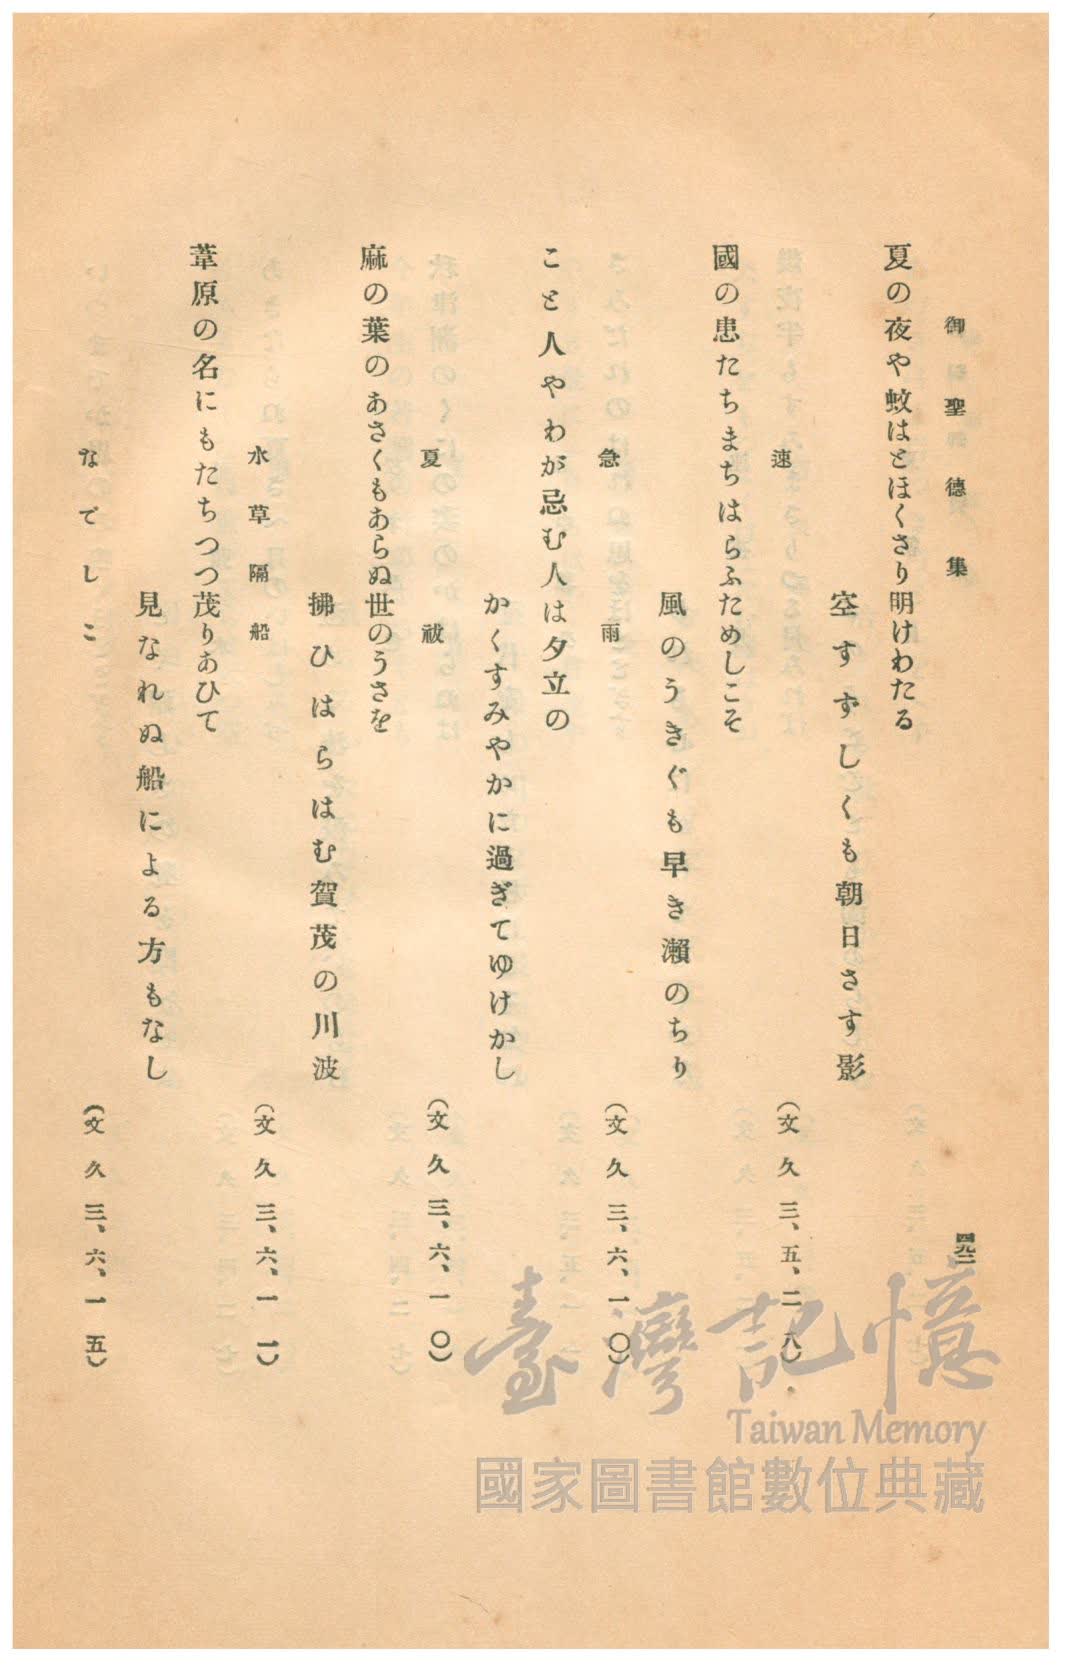 御聖德集
四九二
夏の夜や蚊はとほくさり明けわたる
空すずしくも朝日さす影
速
(文久三、五、二八)
國の患たちまちはらふためしこそ
風のうきぐも早き瀨のちり
急雨
(文久三、六、一〇)
こと人やわが忌む人は夕立の
かくすみやかに過ぎてゆけかし
夏祓
(文久三、六、一〇)
麻の葉のあさくもあらぬ世のうさを
拂ひはらはむ賀茂の川波
水草隔船
(文久三、六、一一)
葦原の名にもたちつつ茂りあひて
見なれぬ船による方もなし
なでしこ
(文久三、六、一五)
臺灣記憶
Taiwan Memory
國家圖書館數位典藏